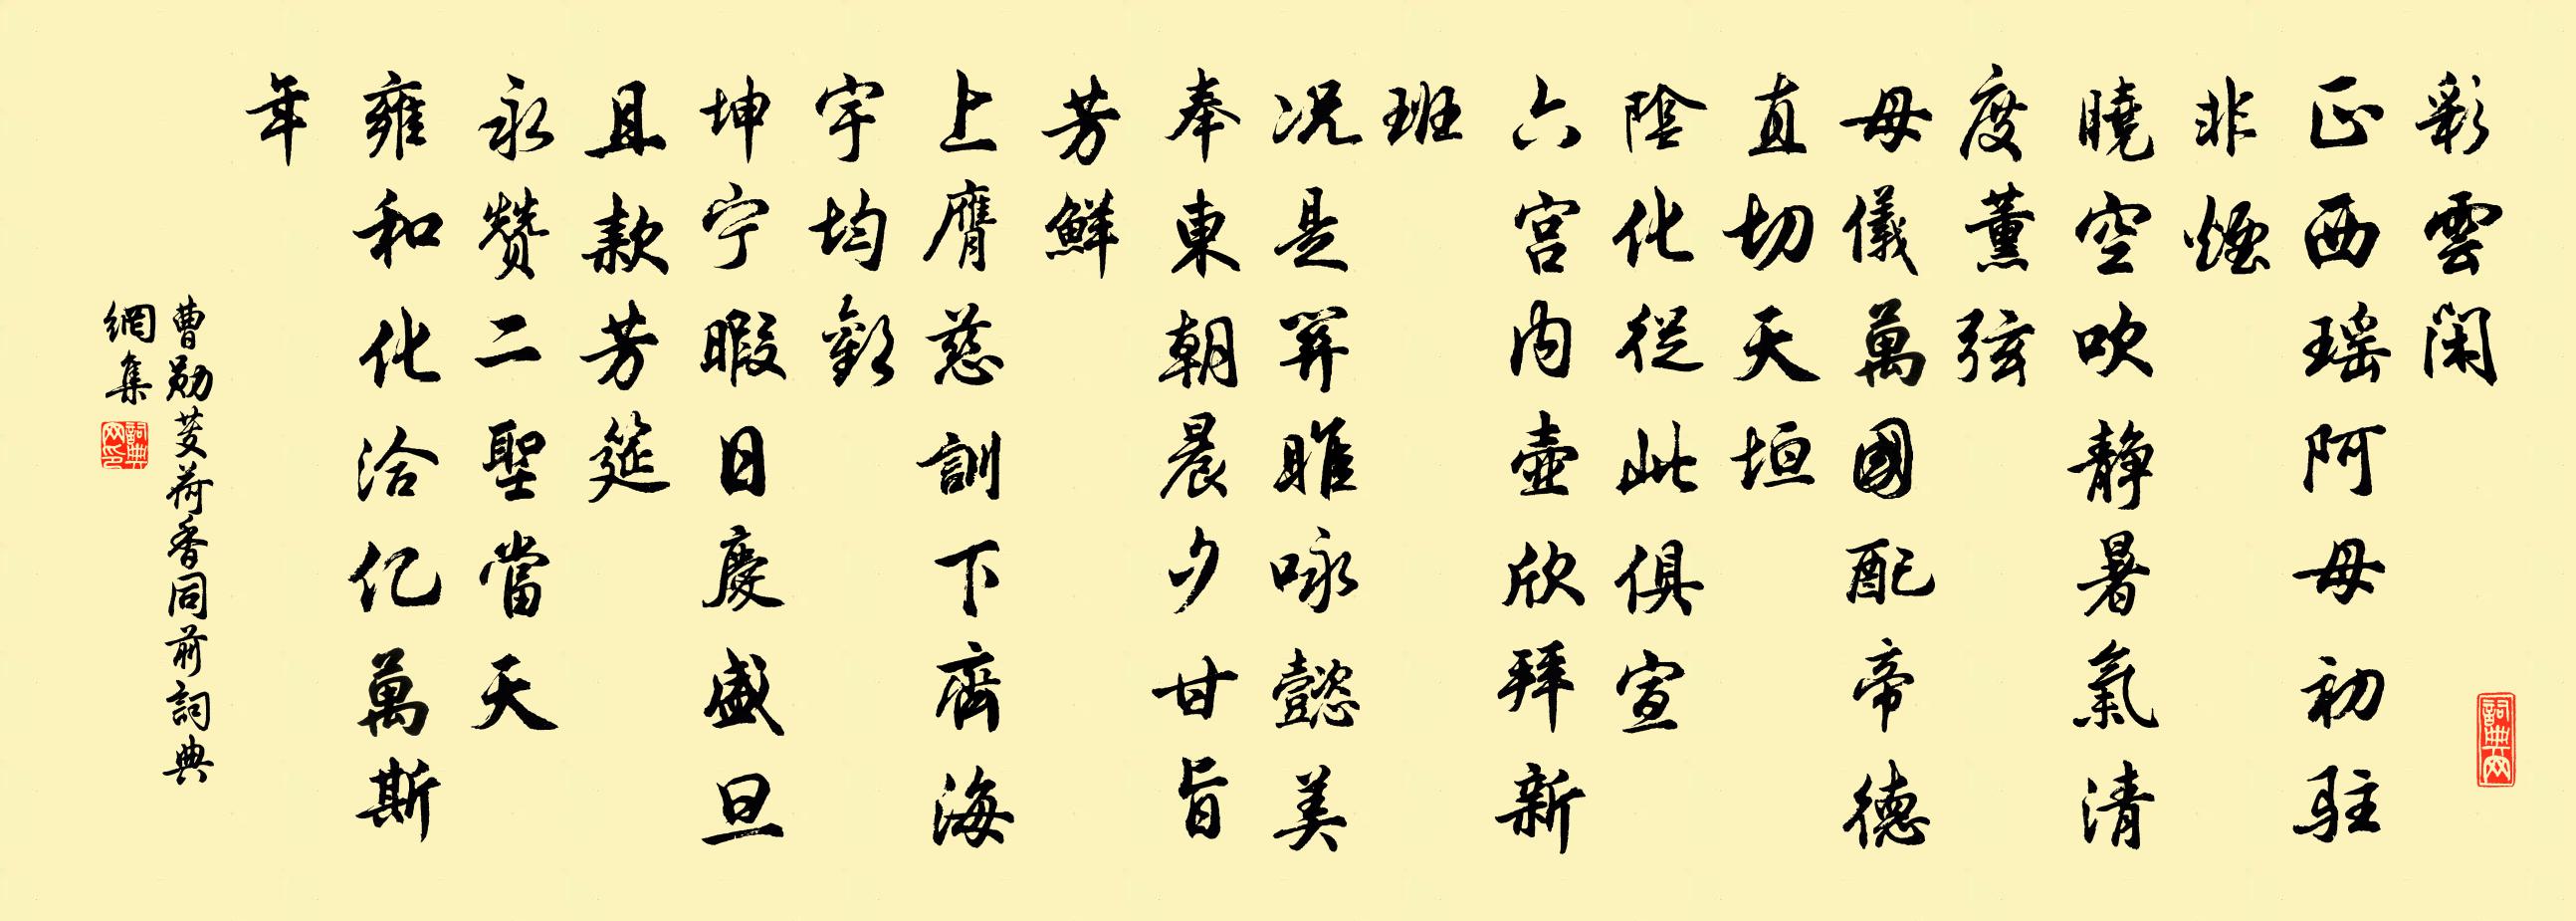 詞典网
彩雲閑
正西瑶阿母初駐
非煙
曉空吹静暑氣清
度薰弦
母儀萬國配帝德
直切天垣
陰化從此俱宣
六宫内壺欣拜新
班
况是關雎咏懿美
奉東朝晨夕甘旨
芳鮮
上膺慈訓下齊海
宇均歡
坤宁暇日慶盛旦
且款芳筵
永贊二聖當天
雍和化洽亿萬斯
年
曹勋芰荷香同前詞典
網集
詞典网印